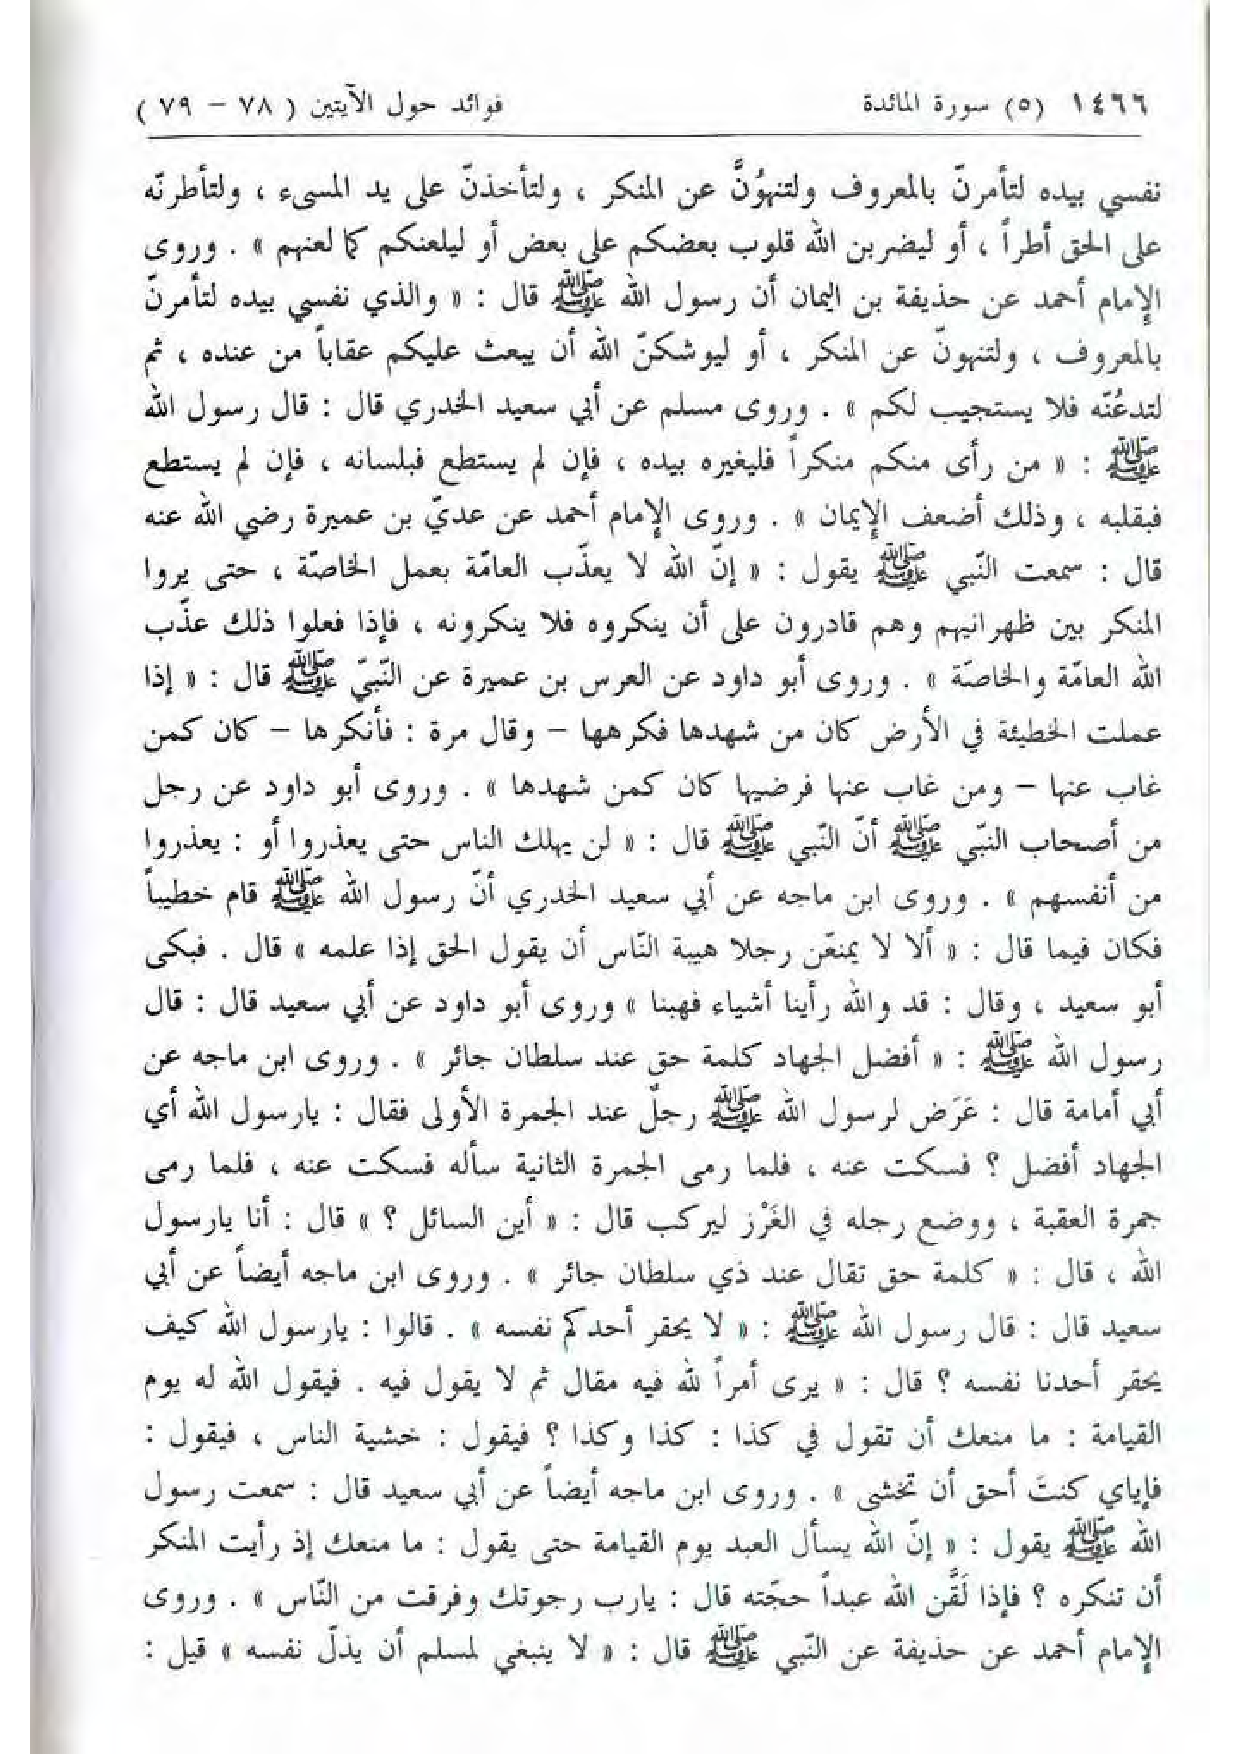 ١٤٦٦ (٥) سورة المائدة فوائد حول الآيتين ( ٧٨ - ٧٩ )
نفسي بيده لتأمرنّ بالمعروف ولتنهوُنَّ عن المنكر ، ولتأخذنّ على يد المسىء ، ولتأطرنّه
على الحق أطراً ، أو ليضربن الله قلوب بعضكم على بعض أو ليلعنكم كما لعنهم » . وروى
الإمام أحمد عن حذيفة بن اليمان أن رسول الله ﷺ قال : « والذي نفسي بيده لتأمرنّ
بالمعروف ، ولتنهونّ عن المنكر ، أو ليوشكنّ الله أن يبعث عليكم عقاباً من عنده ، ثم
لتدعُنّه فلا يستجيب لكم » . وروى مسلم عن أبي سعيد الخدري قال : قال رسول الله
ﷺ : « من رأى منكم منكراً فليغيره بيده ، فإن لم يستطع فبلسانه ، فإن لم يستطع
فبقلبه ، وذلك أضعف الإيمان » . وروى الإمام أحمد عن عديّ بن عميرة رضي الله عنه
قال : سمعت النّبي ﷺ يقول : « إنّ الله لا يعذّب العامّة بعمل الخاصّة ، حتى يروا
المنكر بين ظهرانيهم وهم قادرون على أن ينكروه فلا ينكرونه ، فإذا فعلوا ذلك عذّب
الله العامّة والخاصّة » . وروى أبو داود عن العرس بن عميرة عن النّبيّ ﷺ قال : « إذا
عملت الخطيئة في الأرض كان من شهدها فكرهها - وقال مرة : فأنكرها - كان كمن
غاب عنها - ومن غاب عنها فرضيها كان كمن شهدها » . وروى أبو داود عن رجل
من أصحاب النبّي ﷺ أنّ النّبي ﷺ قال : « لن يهلك الناس حتى يعذروا أو : يعذروا
من أنفسهم » . وروى ابن ماجه عن أبي سعيد الخدري أنّ رسول الله ﷺ قام خطيباً
فكان فيما قال : « ألا لا يمنعّن رجلا هيبة النّاس أن يقول الحق إذا علمه » قال . فبكى
أبو سعيد ، وقال : قد والله رأينا أشياء فهبنا » وروى أبو داود عن أبي سعيد قال : قال
رسول الله ﷺ : « أفضل الجهاد كلمة حق عند سلطان جائر » . وروى ابن ماجه عن
أبي أمامة قال : عَرَض لرسول الله ﷺ رجلٌ عند الجمرة الأولى فقال : يارسول الله أي
الجهاد أفضل ؟ فسكت عنه ، فلما رمى الجمرة الثانية سأله فسكت عنه ، فلما رمى
جمرة العقبة ، ووضع رجله في الغَرْز ليركب قال : « أين السائل ؟ » قال : أنا يارسول
الله ، قال : « كلمة حق تقال عند ذي سلطان جائر » . وروى ابن ماجه أيضاً عن أبي
سعيد قال : قال رسول الله ﷺ : « لا يحقر أحدكم نفسه » . قالوا : يارسول الله كيف
يحقر أحدنا نفسه ؟ قال : « يرى أمراً لله فيه مقال ثم لا يقول فيه . فيقول الله له يوم
القيامة : ما منعك أن تقول في كذا : كذا وكذا ؟ فيقول : خشية الناس ، فيقول :
فإياي كنتَ أحق أن تخشى » . وروى ابن ماجه أيضاً عن أبي سعيد قال : سمعت رسول
الله ﷺ يقول : « إنّ الله يسأل العبد يوم القيامة حتى يقول : ما منعك إذ رأيت المنكر
أن تنكره ؟ فإذا لَقَّن الله عبداً حجّته قال : يارب رجوتك وفرقت من النّاس » . وروى
الإمام أحمد عن حذيفة عن النّبي ﷺ قال : « لا ينبغي لمسلم أن يذلّ نفسه » قيل :